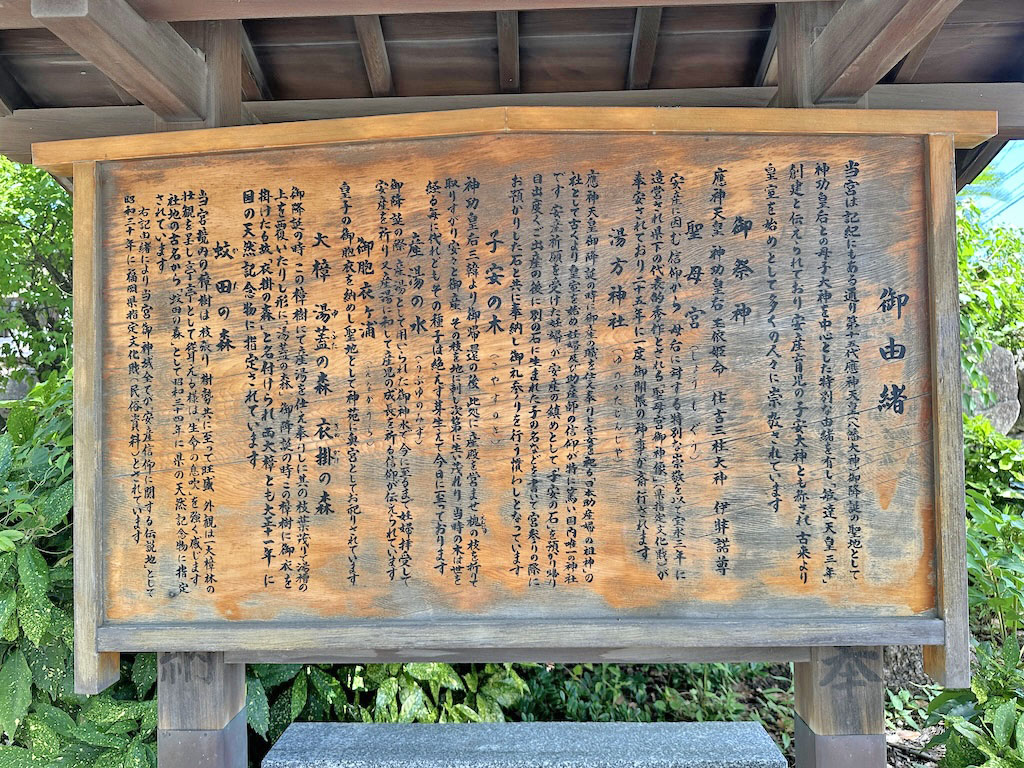 御由緒
当宮は記紀にもある通り第十五代應神天皇(八幡大神)御降誕の聖地として
神功皇后との母子大神を中心とした特別な由緒を有し、敏達天皇三年
創建と伝えられており安産育児の子安大神とも称され、古来より
皇室を始めとして多くの人々に崇敬されています
御祭神
應神天皇 神功皇后 玉依姫命 住吉三柱大神 伊弉諾尊
聖母宮
安産に因む信仰から母后に対する特別な崇敬を以て宝永三年に
造営され県下の代表的秀作とされる聖母宮御神像(県指定文化財)が
奉安されており二十五年に一度御開帳の神事が斎行されます
湯方神社(ゆのかたじんじゃ)
應神天皇御降誕の時、御産の職を仕え奉りし官女を祀る日本助産婦の祖神の
社として古来より皇室を始め妊婦及び助産師の信仰が特に篤い国内唯一の神社
です 安産祈願を受けた妊婦が安産の鎮めとして「子安の石」を預かり帰り
目出度くご出産の後に別の石に生まれた子の名などを書いて宮参りの際に
お預かりした石と共に奉納し御礼参りを行う慣わしとなっています
子安の木(こやすのき)
神功皇后三韓より御帰還の後、此処に産殿を営ませ槐の枝を折りて
取りすがり安々と御産 その枝を地に刺し次第に生い茂れり 当時の木は世を
経る毎に代れどもその種子は絶えず芽生えて今日に至っております
産湯の水(うぶゆのみず)
御降誕の際「産湯」として用いられた御神水で今に至るまで妊婦拝受して
安産を祈り又産湯に和して産児の成長を祈る信仰が伝えられています
御胞衣ヶ浦
皇子の御胞衣を納めし聖地として神苑に奥宮としてお祀りされています
大樟 湯蓋の森 衣掛の森
御降誕の時 この樟樹にて産湯を仕え奉りしに其の枝葉茂り湯槽の
上を蓋ひたりし形に「湯蓋の森」 御降誕の時この樟樹に御衣を
掛けた古蹟「衣掛の森」と名付けられ 両大樟とも大正十一年に
国の天然記念物に指定されています。
蚊田の森
当宮境内の樟樹は枝張り樹勢共に至って旺盛 外観は「大樟林の
壮観を呈し亭亭として聳える様は「生命の息吹」を強く感じます
社地の古名から「蚊田の森」として昭和三十四年に県の天然記念物に指定
されています。
右記由緒により当宮御神域全てが安産信仰に関する伝説地として
昭和三十年に福岡県指定文化財(民俗資料)とされています。
納
奉